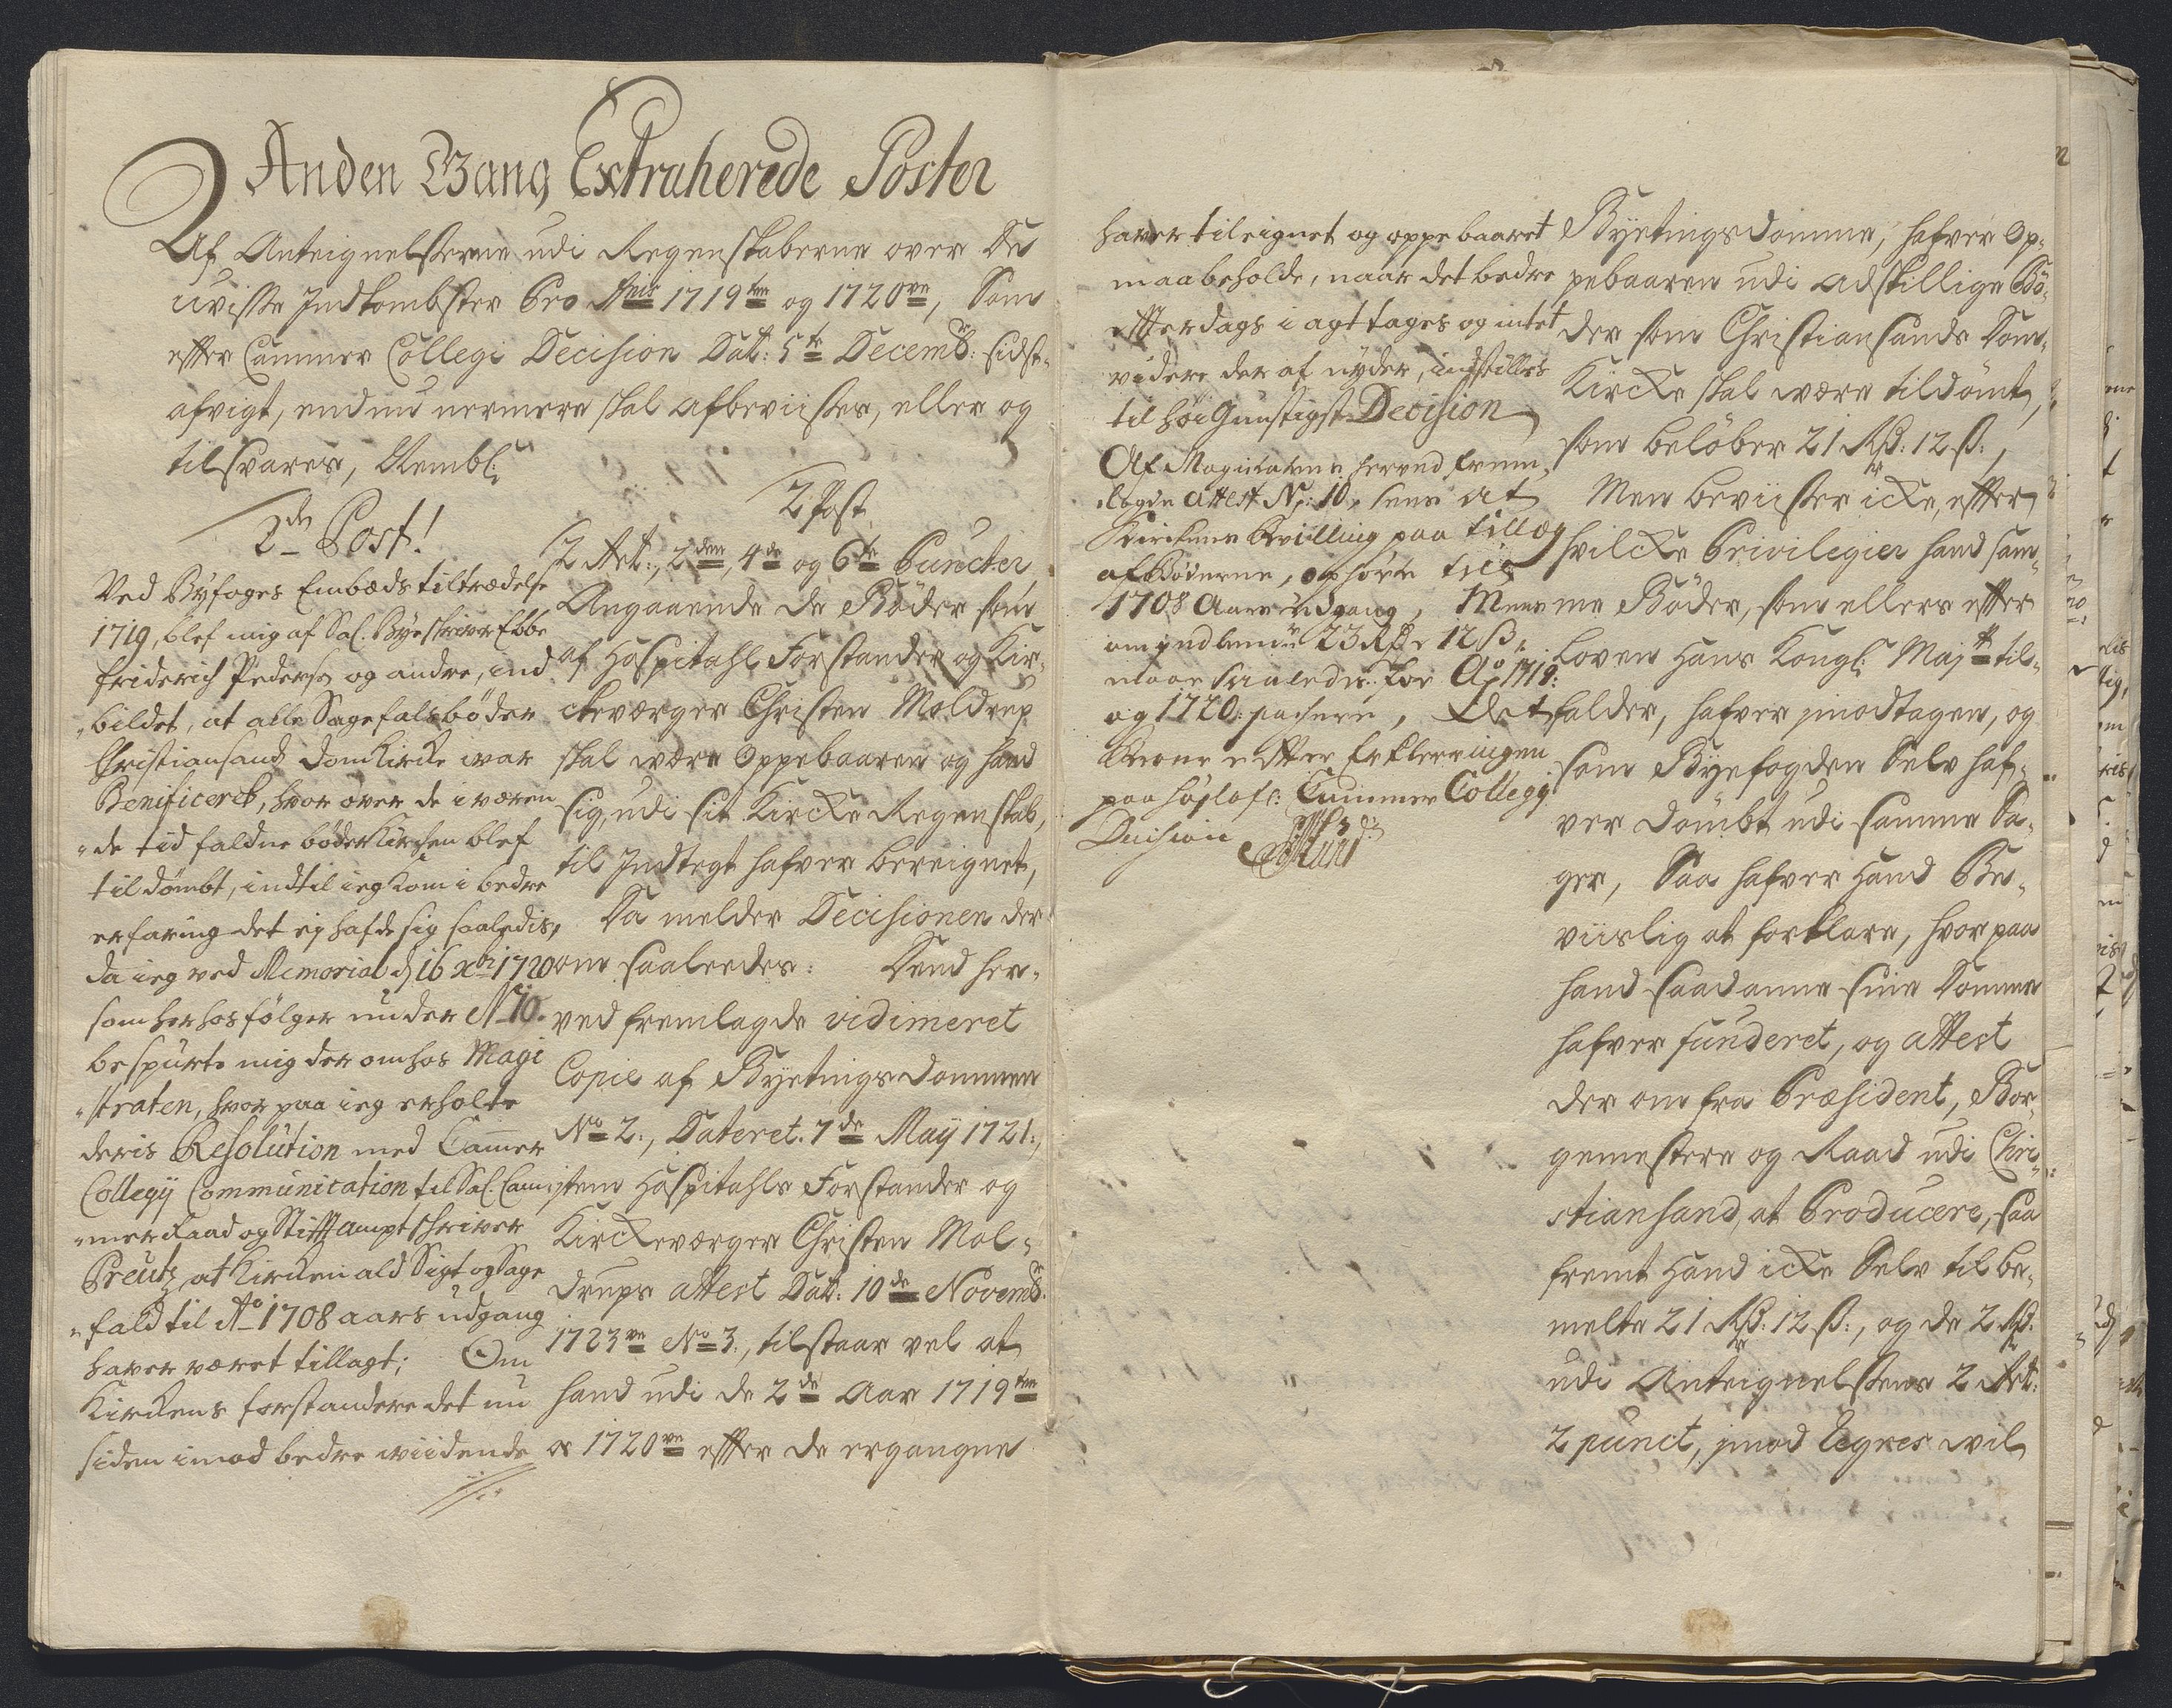 Anden Gang Extraherede Poster
Af Anteignelserne udi Regenskaberne over De
uvisse Indkombster Pro Anis 1719ten og 1720ve, Som
effter Cammer Collegi Decision Dat: 5te Decemb: sidst-
afvigt, endnu nermere skal afbeviisses, eller og
tilsvares, Nembl:
2den Post!
Ved Byfoges Embeds tiltrædelse
1719, blef mig af Sal. Byeskriver Ebbe
Friderich Pedersen og andre, ind
"bildet, at alle Sagefalsbøder
Christiansand domKircke war
Benificeret, hvor over de i væren
"de tid faldne bøder Kircken blef
til dømbt, indtil ieg kom i bedre
erfaring det ej hafde sig saaledis,
da ieg ved Memorial d 16 xbr 1720
som her hos følger under No 10.
bespurte mig der om hos Magi
"straten, hvor paa ieg erholte
deris Resolution med Cammer
Collegij Communication til Sal. Cam
"mer Raad og Stifftamptschriver
Preutz, at Kircken ald Sigt og Sage
"fald til Ao 1708 aars udgang
haver været tillagt; Om
Kirckens forstandere det nu
siden imod bedre wiidende
2 Post
2 Art:, 2den, 4de og 6te Puncter
Angaaende de Bøder som
af Hospitahl Forstander og Kir-
ckeværger Christen Moldrup
skal være Oppebaaren og hand
sig, udi sit Kircke Regenskab,
til Indtegt hafver bereignet,
Da melder Decisionen der
om saaleedes: Send her-
ved fremlagde vidimeret
Copie af Byetings dommen
No 2:, Dateret 7de Maij 1721:,
item Hospitahls Forstander og
Kirckeværger Christen Mol-
drups attest Dat: 10de Novemb:
1723ve No 3:, tilstaar vel at
hand udi de 2de Aar 1719ten
og 1720ve effter de ergangne
haver tileignet og oppebaaret
maa beholde, naar det bedre
effterdags i agt tages og intet
videre der af nyder, indstilles
til høi Gunstigst Decision
Af Magistraten herved frem,
lagde attest No: 10, sees at
Kirckens bevilling paa tillæg
af Bøderne, ophørte ved
1708 Aars udgang, Mens
om indkomne 23 Rdr 12 s:
maae saaledes for Ao 1719:
og 1720: passere,
beroer effter Erklerringen
paa højlofl: Cammer Collegij
Decision
Byetings domme, hafver Op-
pebaaren udi adskillige Bø-
der som Christiansands Dom-
Kircke skal være tildømt,
som beløber 21 Rdr: 12 s:,
Men beviiser icke, effter
hvilcke Privilegier hand sam-
me Bøder, som ellers effter
Loven Hans Kongl: Majts til-
falder, hafver imodtagen, og
som Byefogden Selv haf-
ver dømbt udi samme Sa-
ger, Saa hafver Hand Be-
viislig at forklare, hvor paa
hand saadanne sine Domme
hafver funderet, og attest
der om fra Præsident, Bor-
gemestere og Raad udi Chri-
stiansand, at Producere, saa
fremt Hand icke Selv til be-
melte 21 Rdr: 12 s:, og de 2 Rdr:
udi Anteignelsens 2 Art:
2 punct, imod Regres vil